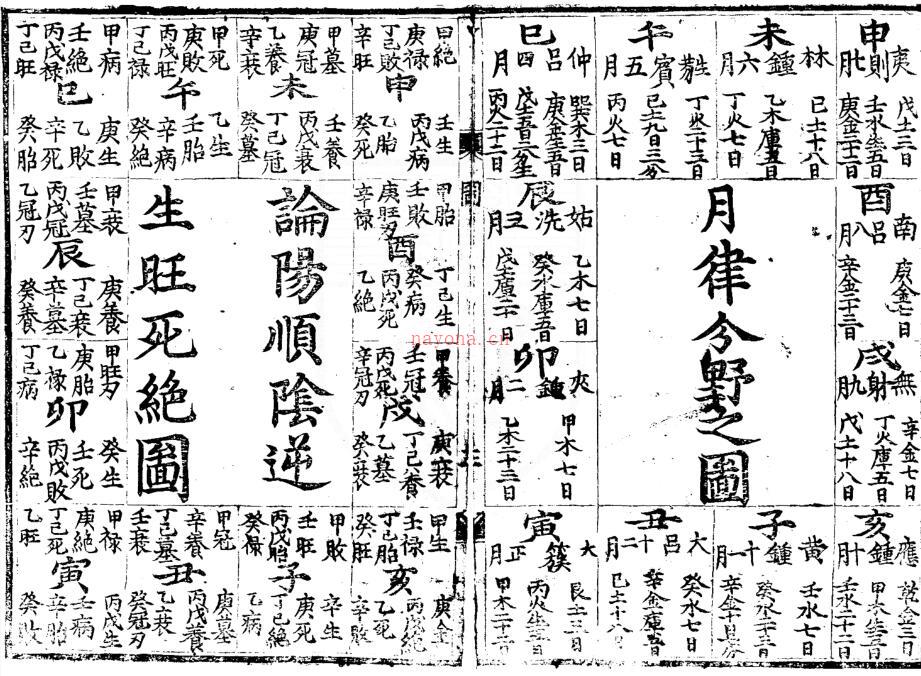 申
夷則
壬水生五日
未
林鍾
六月
己土十八日
乙木庫五日
丁火七日
午
賓
五月
丁火二十三日
己土九日三分
丙火七日
巳
仲呂
四月
庚金生五日
酉
南呂
八月
庚金七日
辛金二十三日
月律分野之圖
辰
姑洗
三月
乙木七日
癸水庫五日
戌
無射
辛金七日
丁火庫五日
戊土十八日
卯
夾鐘
二月
甲木七日
乙木二十三日
亥
應鍾
子
黃鍾
十一月
壬水七日
癸水二十三日
丑
大呂
十二月
癸水七日
辛金庫五日
己土十八日
寅
太簇
正月
艮土三日
申
庚祿
丁己敗
辛旺
壬生
丙戊病
乙胎
癸死
未
甲墓
庚冠
乙養
辛衰
壬養
丙戊衰
丁己冠
癸墓
午
甲死
庚敗
丙戊旺
丁己祿
乙生
壬胎
辛病
癸絕
巳
甲病
壬絕
丙戊祿
丁己旺
庚生
乙敗
辛死
癸胎
酉
甲胎
壬敗
庚旺刃
辛祿
丁己生
癸病
丙戊死
乙絕
論陽順陰逆
生旺死絕圖
辰
甲衰
壬墓
丙戊冠
乙冠刃
庚養
丁己衰
辛墓
癸養
戌
甲養
壬冠
辛冠刃
庚衰
丁己養
乙墓
癸衰
卯
甲旺刃
庚胎
乙祿
丁己病
癸生
壬死
丙戊敗
辛絕
亥
甲生
壬祿
丁己胎
癸旺
丙戊絕
乙死
辛敗
子
甲敗
壬旺
丙戊胎
癸祿
辛生
庚死
丁己絕
乙病
丑
甲冠
辛養
丁己墓
壬衰
庚墓
丙戊養
乙衰
癸冠刃
寅
甲祿
庚絕
丁己死
乙旺
丙戊生
壬病
辛胎
癸敗
nayona.cn